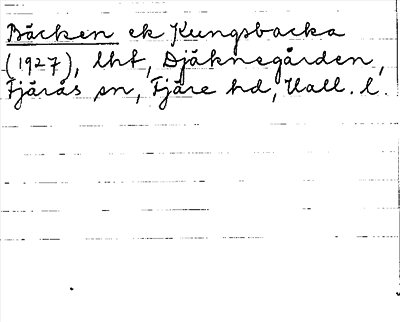 Bäcken ek Kungsbacka
(1927), lht, Djäknegården,
Fjärås sn, Fjäre hd, Hall. l.